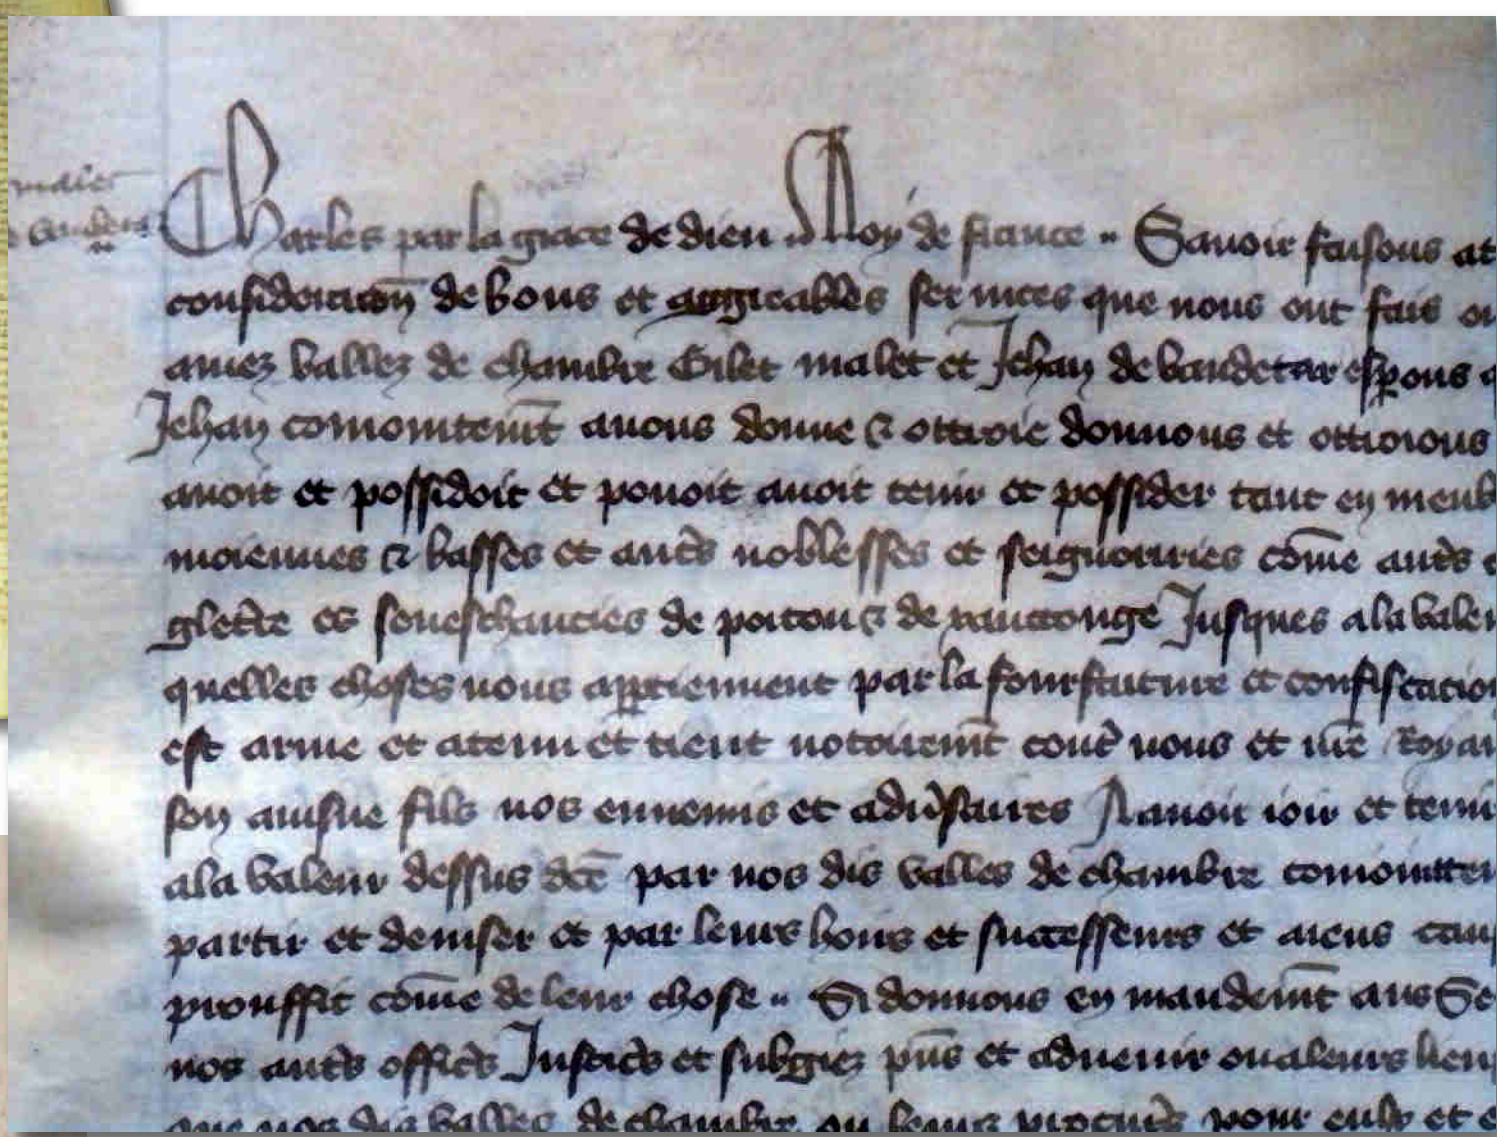 malet
Charles par la grace de dieu .. Roy de france .. Savoir faisons
consideracōn de bons et aggreables services que nous ont fais
amez vallez de chambre Gilet malet et Jehan de vaudetar esp̱ous
Jehan comointem̄t avons donne & ottroie donnons et ottroions
avoit et possidoit et povoit avoir tenir et possider tant en
moiennes & basses et autr̄s noblesses et seignouries cōme autr̄s
glet̄re es seneschaucies de poitou & de xanctonge Jusques a la
quelles choses nous app̱tiennent par la fourfaiture et
est arme et a tenu et tient notoirem̄t cont̄ nous et nr̄e
son ainsne filz nos ennemis et adv̄saires A avoir ioir et
a la valeur dessus dc̄e par nos dis valles de chambre
partir et deviser et par leurs hoirs et successeurs et aiens
prouffit cōme de leur chose .. Si donnons en mandem̄t aus
nos autr̄s offic̄s Justic̄s et subgiez pn̄s et advenir ou a leurs
que nos dis valles de chambre ou leurs procur̄s pour eulx et